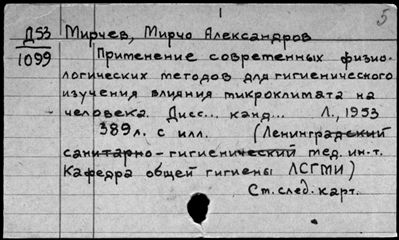 1 5
Д53 Мирчев, Мирчо Александров
1099 Применение современных физио-
логических методов для гигиенического
изучения влияния микроклимата на
человека. Дисс... канд... Л., 1953
389л. с илл. (Ленинградский
санитарно-гигиенический мед. ин-т.
Кафедра общей гигиены ЛСГМИ)
Ст. след. карт.